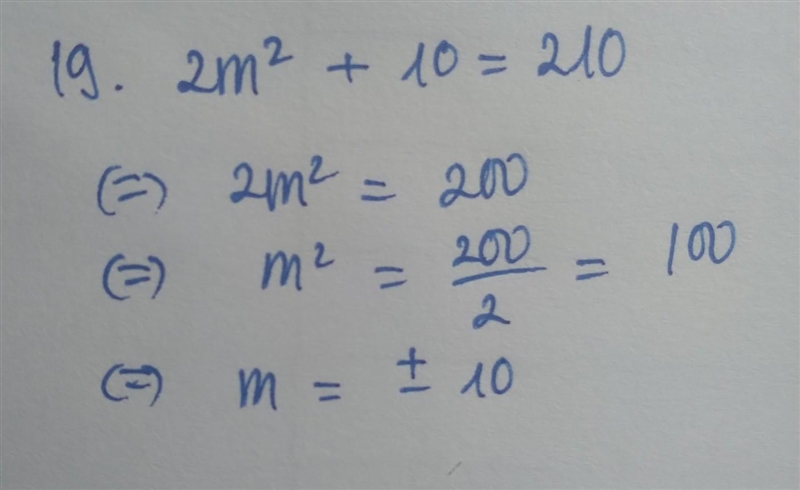 19. 2m² + 10 = 210
(=) 2m² = 200
(=) m² = 200/2 = 100
(=) m = ± 10